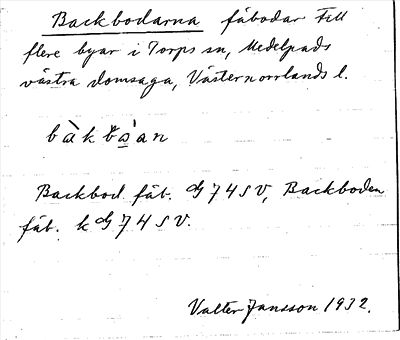 Backbodarna fäbodar till
flere byar i Torps sn, Medelpads
västra domsaga, Västernorrlands l.
Backbod fäb. G 74 SV, Backboden
fäb. k G 74 SV.
Valter Jansson 1932.